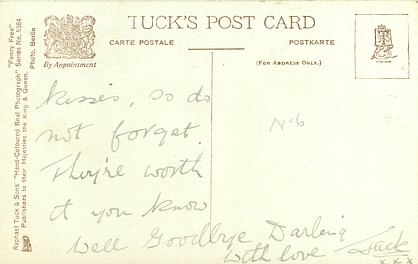 TUCK'S POST CARD
CARTE POSTALE
POSTKARTE
By Appointment
(FOR ADDRESS ONLY.)
"Fancy Free" Series No. 5384
Photo. Berlin
Raphael Tuck & Sons' "Hand-Coloured Real Photograph"
Publishers to their Majesties the King & Queen.
Kisses, so do
not forget.
They're worth
it you know
Well Goodbye Darling
With love Jack
x x x
No 6